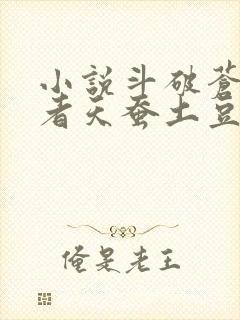 小説斗破蒼
者天蚕土豆
俺是老王